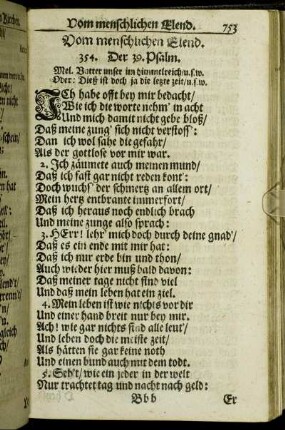 Vom menschlichen Elend. 753
Vom menschlichen Elend.
354. Der 39. Psalm.
Mel. Vatter unser im himmelreich/u.s.w.
Oder: Dieß ist doch ja die letzte zeit/u.s.w.
ICh habe offt bey mir bedacht/
Wie ich die worte nehm' in acht
Und mich damit nicht gebe bloß/
Daß meine zung' sich nicht verstoß':
Dan ich wol sahe die gefahr/
Als der gottlose vor mir war.
2. Ich zäumete auch meinen mund/
Daß ich fast gar nicht reden kont':
Doch wuchs' der schmertz an allem ort/
Mein hertz entbrante immerfort/
Daß ich heraus noch endlich brach
Und meine zunge also sprach:
3. HErr! lehr' mich doch durch deine gnad'/
Daß es ein ende mit mir hat:
Daß ich nur erde bin und thon/
Auch wieder hier muß bald davon:
Daß meiner tage nicht sind viel
Und daß mein leben hat ein ziel.
4. Mein leben ist wie nichts vor dir
Und einer hand breit nur bey mir.
Ach! wie gar nichts sind alle leut'/
Und leben doch die meiste zeit/
Als hätten sie gar keine noth
Und einen bund auch mit dem todt.
5. Seht/ wie ein jeder in der welt
Nur trachtet tag und nacht nach geld:
Bbb Er